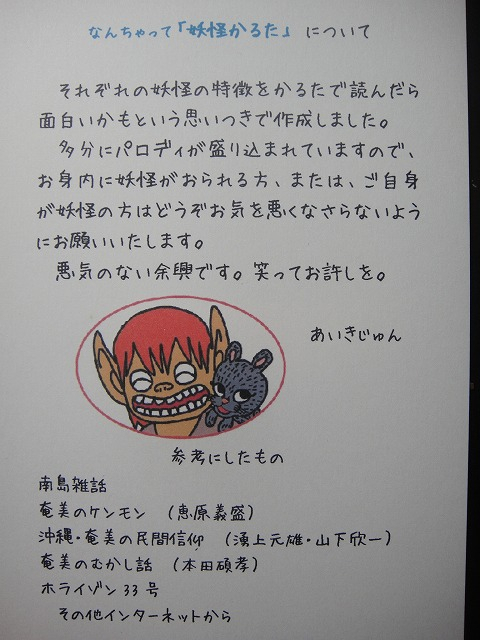 なんちゃって「妖怪かるた」について
それぞれの妖怪の特徴をかるたで読んだら
面白いかもという思いつきで作成しました。
多分にパロディが盛り込まれていますので、
お身内に妖怪がおられる方、または、ご自身
が妖怪の方はどうぞお気を悪くなさらないよう
にお願いいたします。
悪気のない余興です。笑ってお許しを。
あいきじゅん
参考にしたもの
南島雑話
奄美のケンモン （恵原義盛）
沖縄・奄美の民間信仰 （湧上元雄・山下欣一）
奄美のむかし話 （本田碩孝）
ホライゾン33号
その他インターネットから